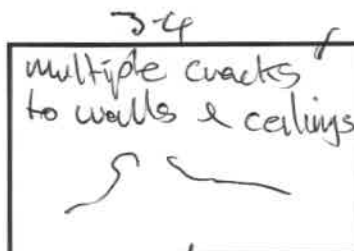 3-4
multiple cracks
to walls & ceilings